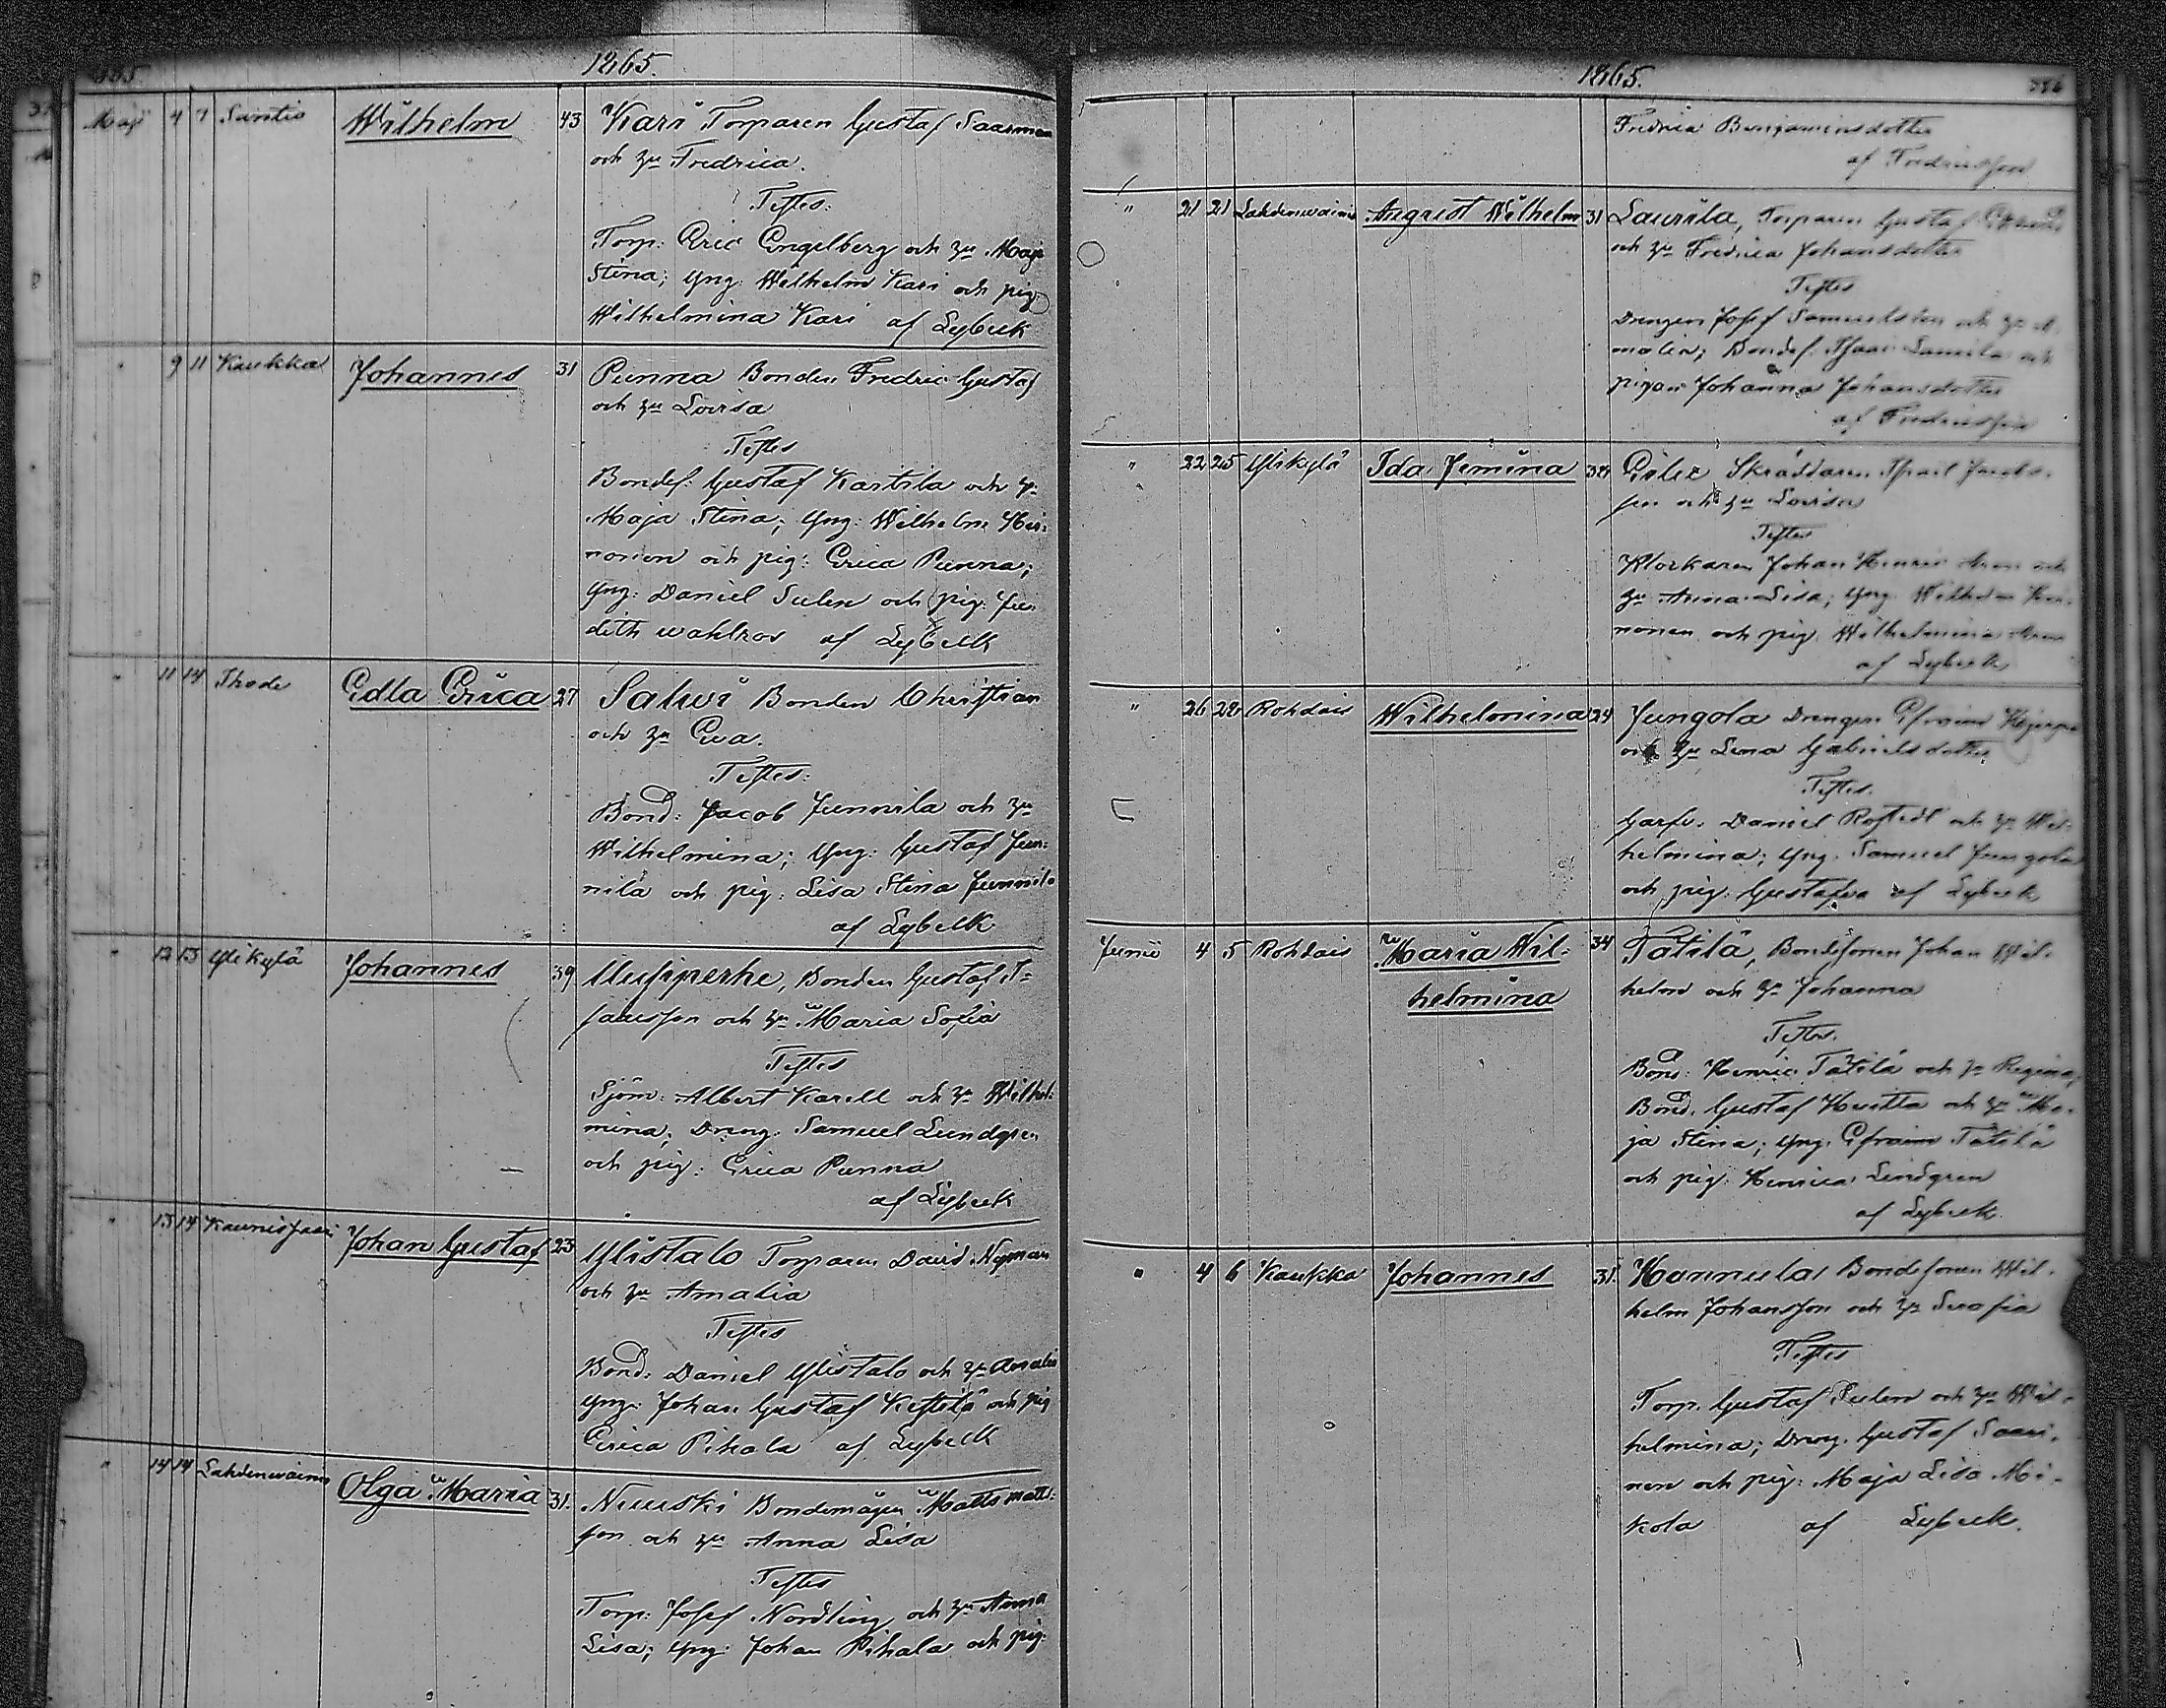 1865.
Maji 4 7 Santio Wilhelm 43 Kari Torparen Gustaf Saarman
och hu Fredrica.
Testes:
Torp: Eric Engelberg och hu Maja
Stina; yng: Wilhelm Kari och pig:
Wilhelmina Kari af Lybeck
" 9 11 Kaukka Johannes 31 Punna Bonden Fredric Gustaf
och hu Lovisa
Testes
Bondes: Gustaf Kartila och h:
Maja Stina; yng: Wilhelm Hei-
nonen och pig: Erica Punna;
yng: Daniel Sulen och pig: Ju-
dith wahlros af Lybeck
" 11 14 Thode Edla Erica 27 Salwi Bonden Christian
och hu Eva.
Testes:
Bond: Jacob Junnila och hu
Wilhelmina; yng: Gustaf Jun-
nila och pig: Lisa Stina Junnila
af Lybeck
" 12 13 Ylikylä Johannes 39 Uusiperhe, Bonden Gustaf I-
saacsson och hu Maria Sofia
Testes
Sjöm: Albert Karell och h: Wilhel-
mina; Dreng: Samuel Lundgren
och pig: Erica Punna
af Lybeck
" 13 14 Kaunissaari Johan Gustaf 23 Ylistalo Torparen David Nyman
och hu Amalia
Testes
Bond: Daniel Ylistalo och hu Amalia
yng: Johan Gustaf Kestilä och pig
Erica Pihala af Lybeck
" 14 14 Lahdenwainio Olga Maria 31. Niuski Bondemågen Matts Matts-
son och hu Anna Lisa
Testes
Torp: Josef Nordling och hu Anna
Lisa; yng: Johan Pihala och pig:
1865. 336
Fredrica Benjaminsdotter
af Fredricsson
" 21 21 Lahdenwainio August Wilhelm 31 Laurila, Torparen Gustaf
och hu Fredrica Johansdotter
Testes
Drengen Josef Samuelsson och h: A-
malia; Bondes. Isaac Laurila och
pigan Johanna Johansdotter
af Fredricsson
" 22 25 Ylikylä Ida Jemina 38 Eske Skräddaren Israel Jacobs-
son och hu Lovisa
Testes
Klockaren Johan Henric Aron och
hu Anna Lisa; yng: Wilhelm Hei-
nonen och pig. Wilhelmina Aron
af Lybeck
" 26 28 Rohdais Wilhelmina 24 Jungola Drengen Efraim
och hu Lena Gabrielsdotter
Testes.
Garfv. Daniel Rostedt och h: Wil-
helmina; yng. Samuel Jungola
och pig: Gustafva af Lybeck
Junii 4 5 Rohdais Maria Wil- 34 Tätilä, Bondesonen Johan Wil-
helmina helm och h: Johanna
Testes.
Bond: Henric Tätilä och h: Regina,
Bond. Gustaf Huitta och hu Ma-
ja Stina; yng. Efraim Tätilä
och pig: Henrica Lindgren
af Lybeck.
" 4 6 Kaukka Johannes 31. Hannula Bondesonen Wil-
helm Johansson och h: Serafia
Testes
Torp. Gustaf Sulen och hu Wil-
helmina; Dreng. Gustaf Saari-
nen och pig: Maja Lisa Mi-
kola af Lybeck.